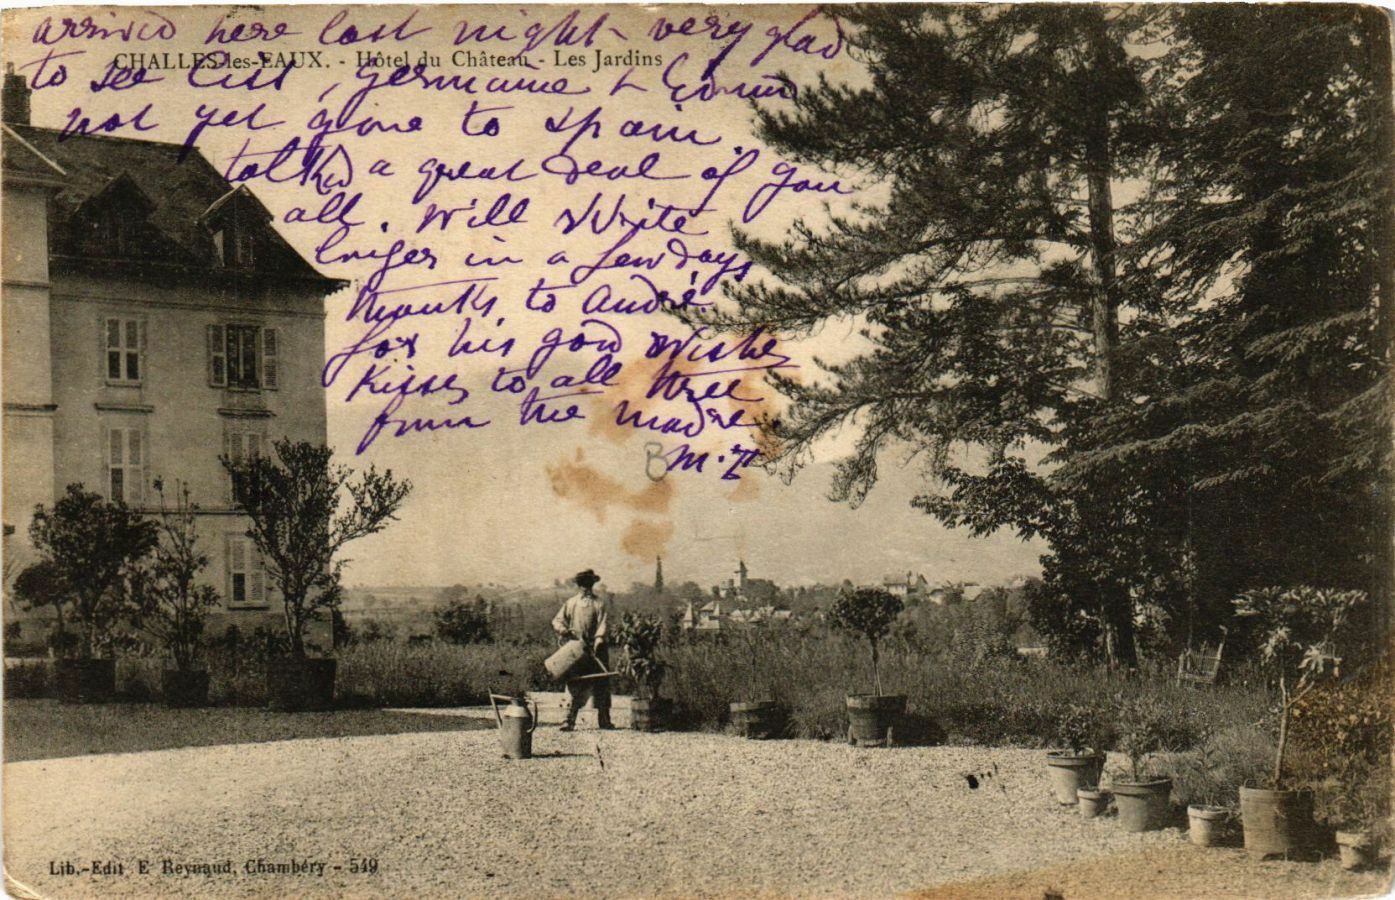 arrived here last night very glad
CHALLES-les-EAUX. - Hôtel du Château - Les Jardins
to see Cist, Germaine &
not yet gone to Spain.
talked a great deal of you
all. Will Write
longer in a few days
thanks to André
for his good Wishes
Kisses to all three
from the madre.
B M.Z
Lib.-Edit E Reynaud, Chambéry - 549